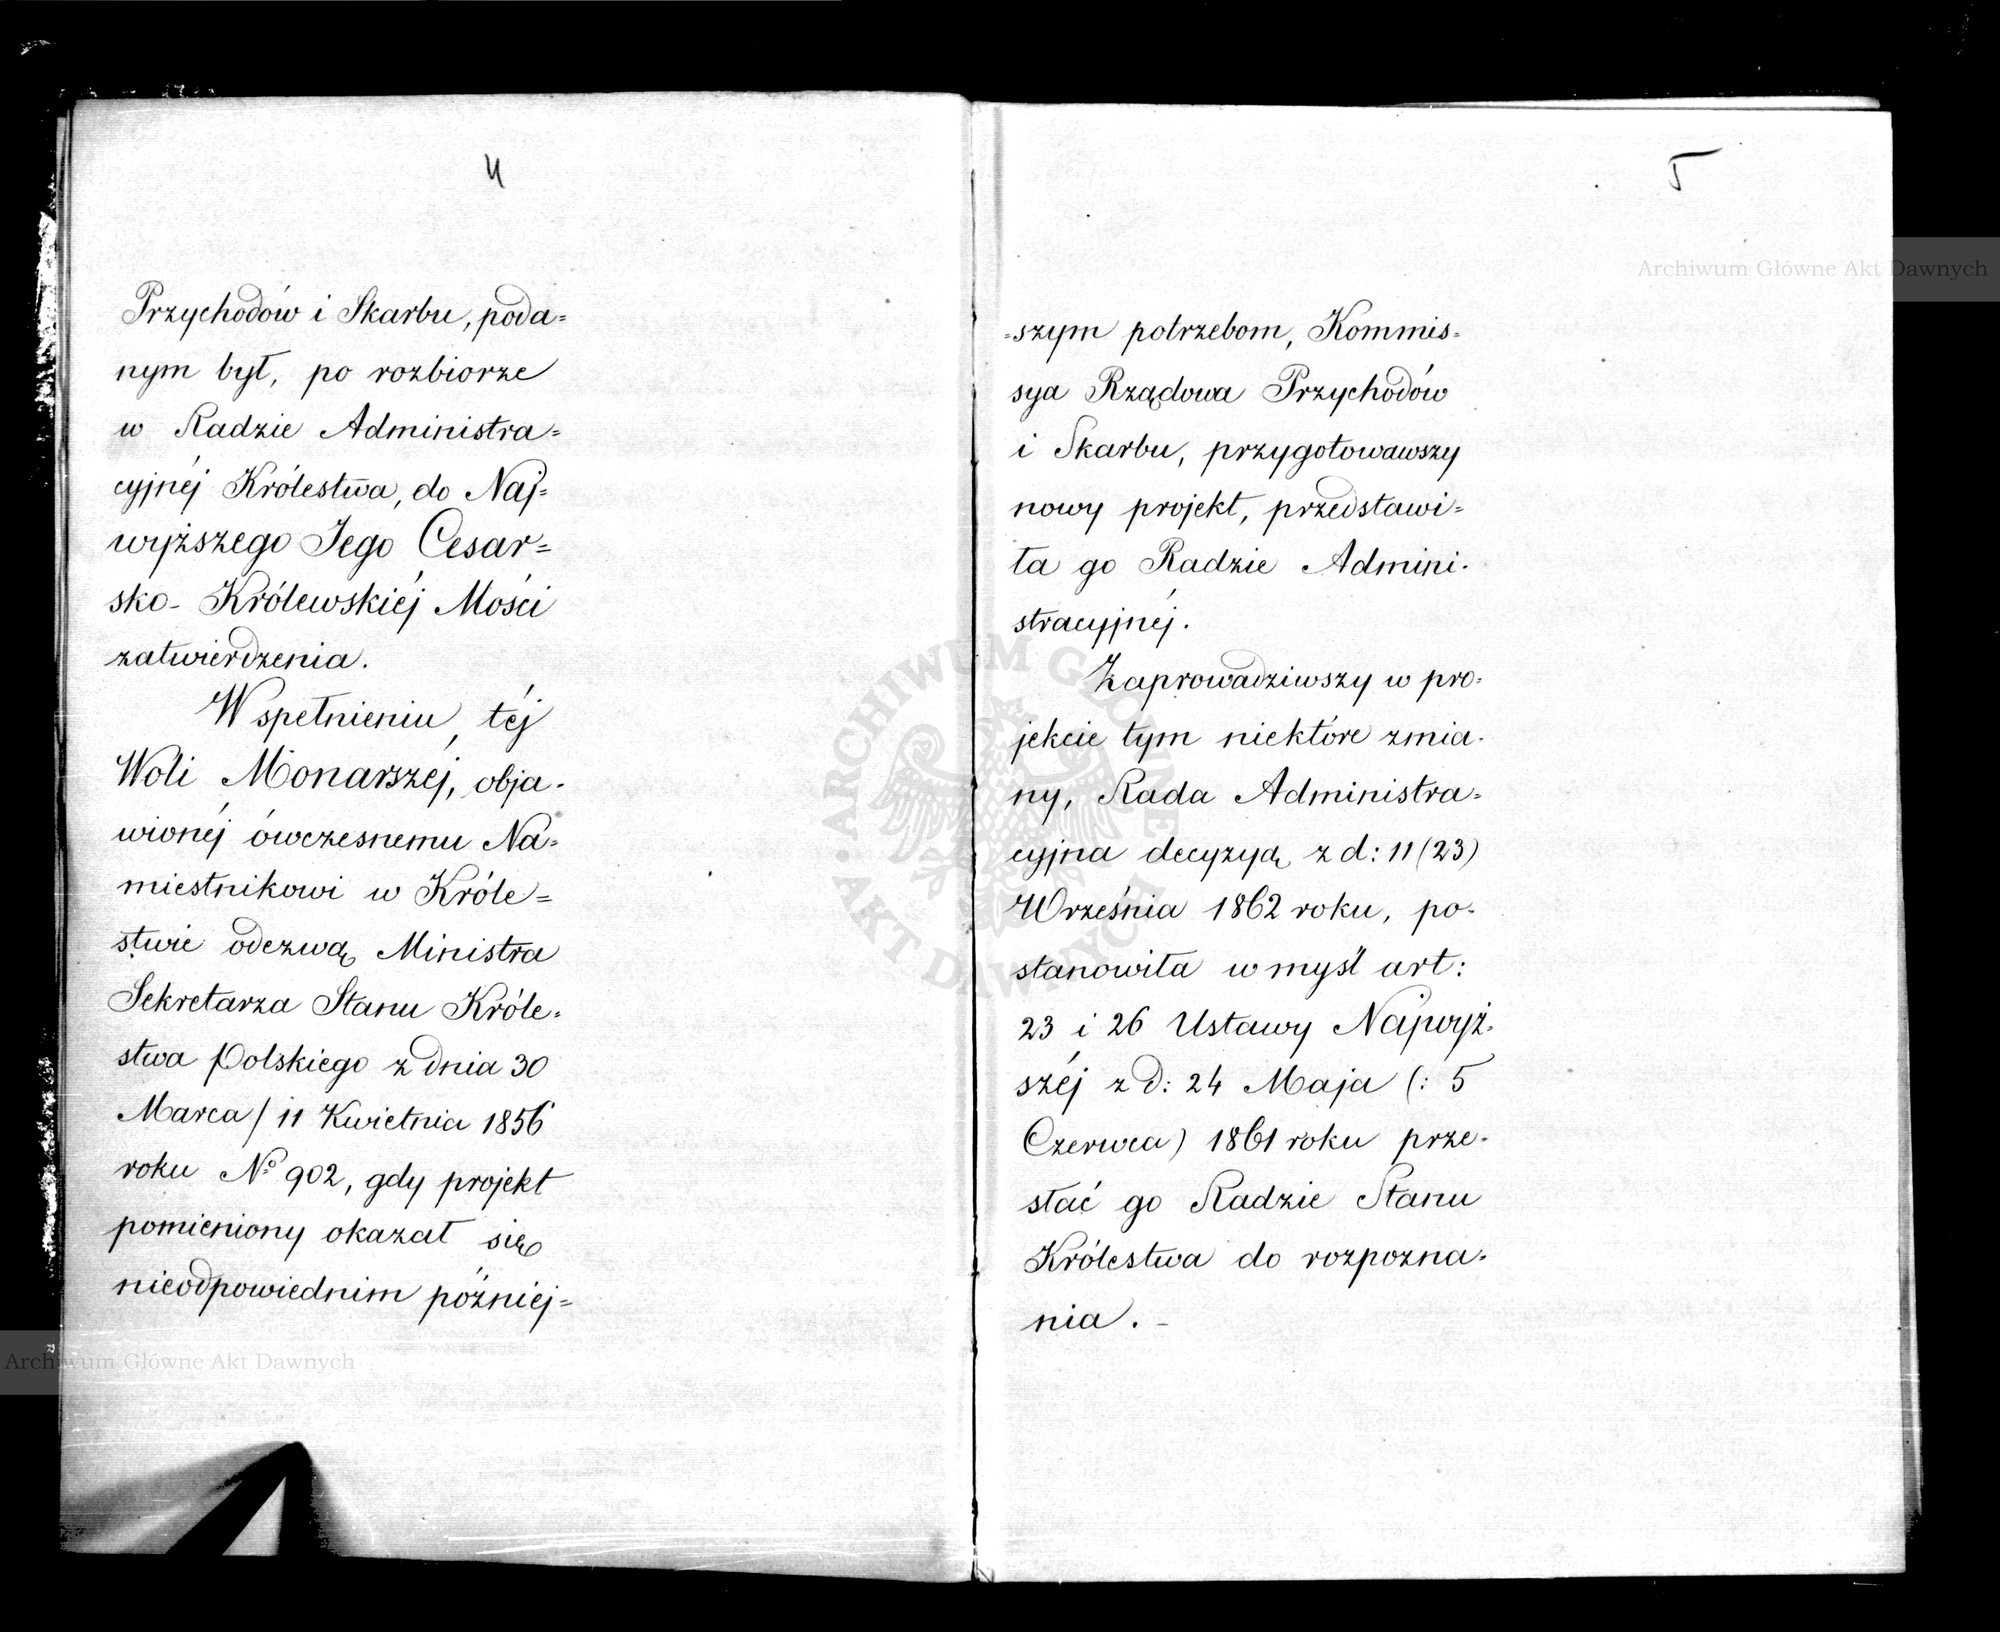 4
Przychodów i Skarbu, poda=
nym był, po rozbiorze
w Radzie Administra=
cyjnéj Królestwa, do Naj=
wyższego Jego Cesar=
sko-Królewskiéj Mości
zatwierdzenia.
W spełnieniu téj
Woli Monarszéj, obja-
wionéj ówczesnemu Na=
miestnikowi w Króle=
stwie odezwą Ministra
Sekretarza Stanu Króle=
stwa Polskiego z dnia 30
Marca / 11 Kwietnia 1856
roku No 902, gdy projekt
pomieniony okazał się
nieodpowiednim późniéj=
5
=szym potrzebom, Kommis=
sya Rządowa Przychodów
i Skarbu, przygotowawszy
nowy projekt, przedstawi=
ła go Radzie Admini-
stracyjnéj.
Zaprowadziwszy w pro=
jekcie tym niektóre zmia-
ny, Rada Administra=
cyjna decyzyą z d: 11 (23)
Września 1862 roku, po-
stanowiła w myśl art:
23 i 26 Ustawy Najwyż-
széj z d: 24 Maja (: 5
Czerwca) 1861 roku prze-
słać go Radzie Stanu
Królestwa do rozpozna-
nia. -
Archiwum Główne Akt Dawnych
Archiwum Główne Akt Dawnych
ARCHIWUM GŁÓWNE AKT DAWNYCH